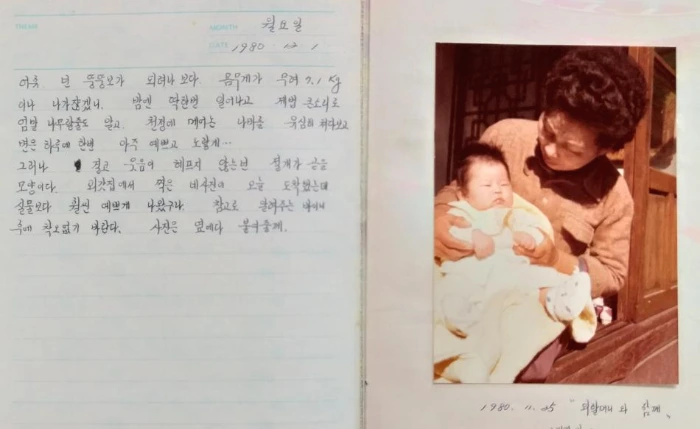 THEME
MONTH 월요일
DATE 1980 12 1
아춧, 넌 뚱뚱보가 되려나 보다 몸무게가 무려 7.1 kg
이나 나가잖겠니. 밤엔 딱한번 일어나고 제법 큰소리로
엄말 나무랄줄도 알고 천정에 매이는 나비를 욕심껏 쳐다보고
변은 하루에 한번 아주 예쁘고 노랗게...
그러나 길고 웃음이 헤프지 않는 절개가 곧을
모양이다. 외갓집에서 찍은 네사진이 오늘 도착했는데
실물보다 훨씬 예쁘게 나왔구나. 참고로 알려주는 바이니
후에 착오없기 바란다. 사진은 옆에다 붙여줄께.
1980. 11. 25 "외할머니 와 함께"